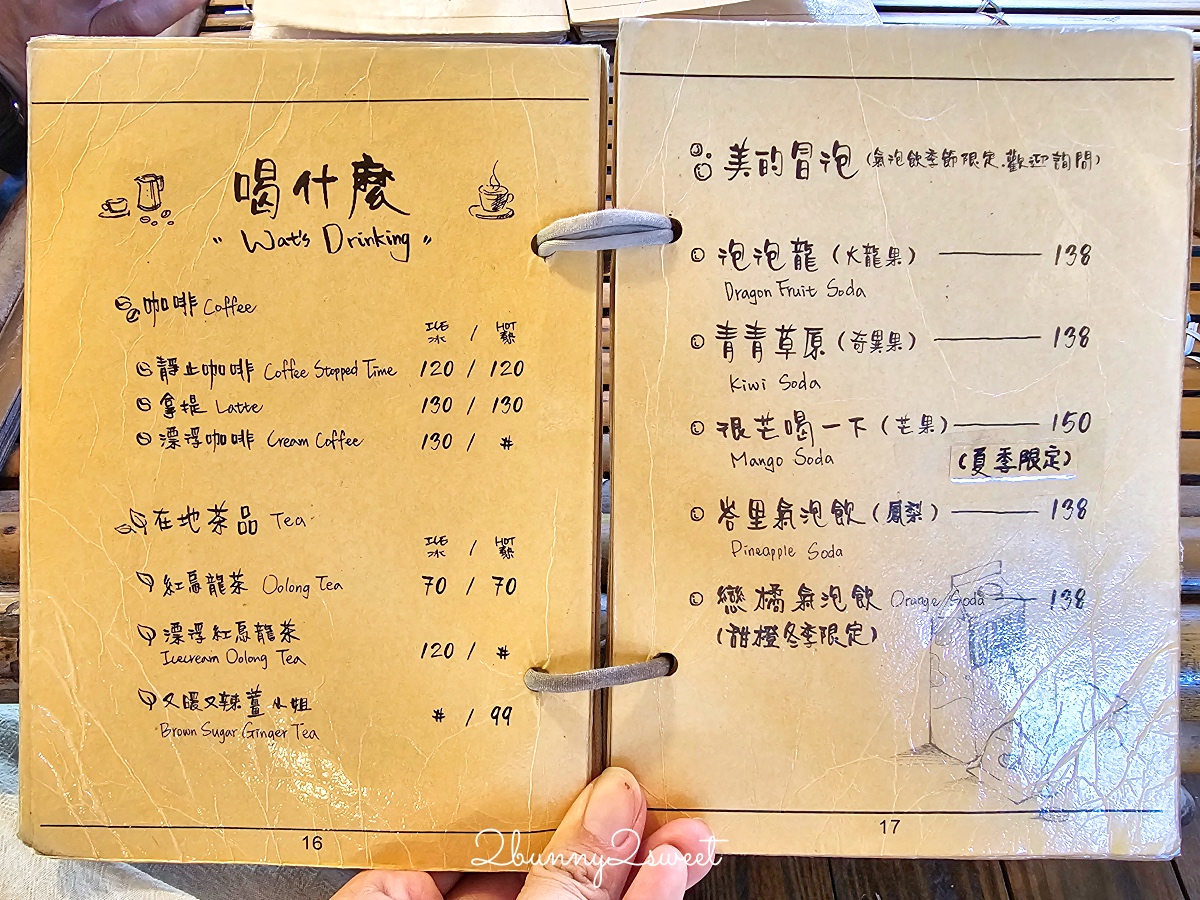 喝什麼
"Wat's Drinking"
咖啡 Coffee
ICE / HOT
冰 熱
靜止咖啡 Coffee Stopped Time 120 / 120
拿提 Latte 130 / 130
漂浮咖啡 Cream Coffee 130 / #
在地茶品 Tea
ICE / HOT
冰 熱
紅烏龍茶 Oolong Tea 70 / 70
漂浮紅烏龍茶
Icecream Oolong Tea 120 / #
又暖又辣薑小姐
Brown Sugar Ginger Tea # / 99
16
美的冒泡 (氣泡飲季節限定.歡迎詢問)
泡泡龍 (火龍果) 138
Dragon Fruit Soda
青青草原 (奇異果) 138
Kiwi Soda
很芒喝一下 (芒果) 150
Mango Soda (夏季限定)
峇里氣泡飲 (鳳梨) 138
Pineapple Soda
戀橘氣泡飲 Orange Soda 138
(甜橙冬季限定)
17
2bunny2sweet